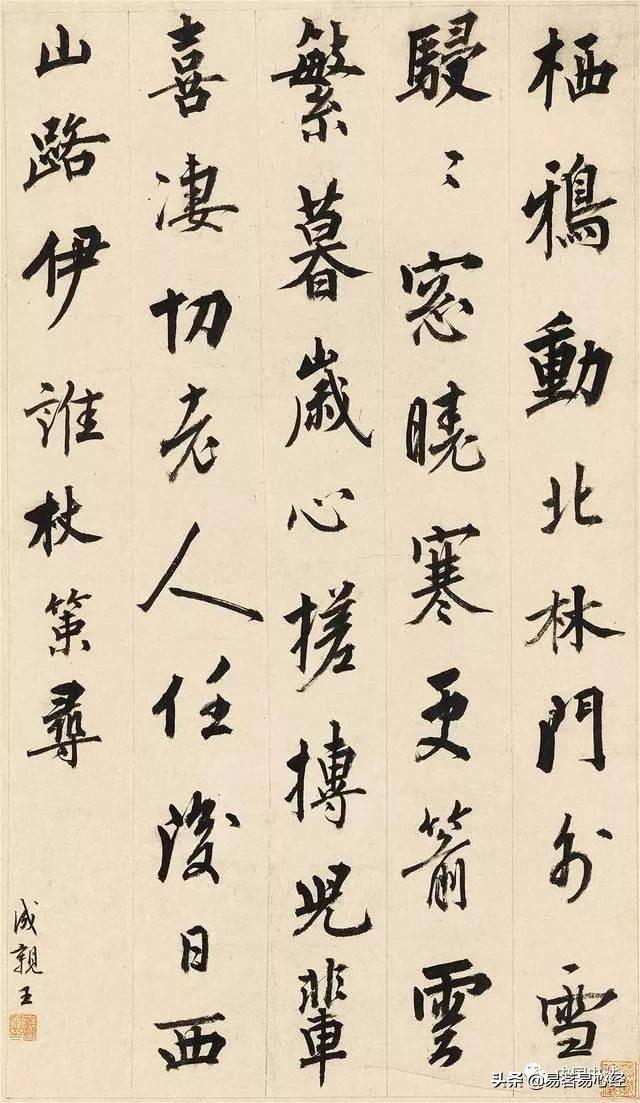 栖鴉動北林門外雪
駸〻窓曉寒更箭雲
繁暮歲心搓摶兒輩
喜凄切老人任後日西
山路伊誰杖策尋
成親王
中国书法
头条